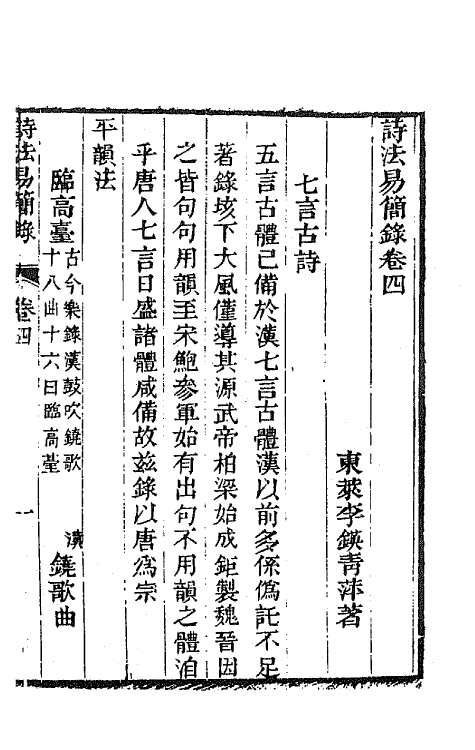 詩法易簡錄卷四
東萊李鍈靑萍著
七言古詩
五言古體已備於漢七言古體漢以前多係僞託不足
著錄垓下大風僅導其源武帝柏梁始成鉅製魏晉因
之皆句句用韻至宋鮑參軍始有出句不用韻之體洎
乎唐人七言日盛諸體咸備故茲錄以唐爲宗
平韻法
臨高臺古今樂錄漢鼓吹鐃歌
十八曲十六曰臨高臺
漢鐃歌曲
詩法易簡錄 卷四 一